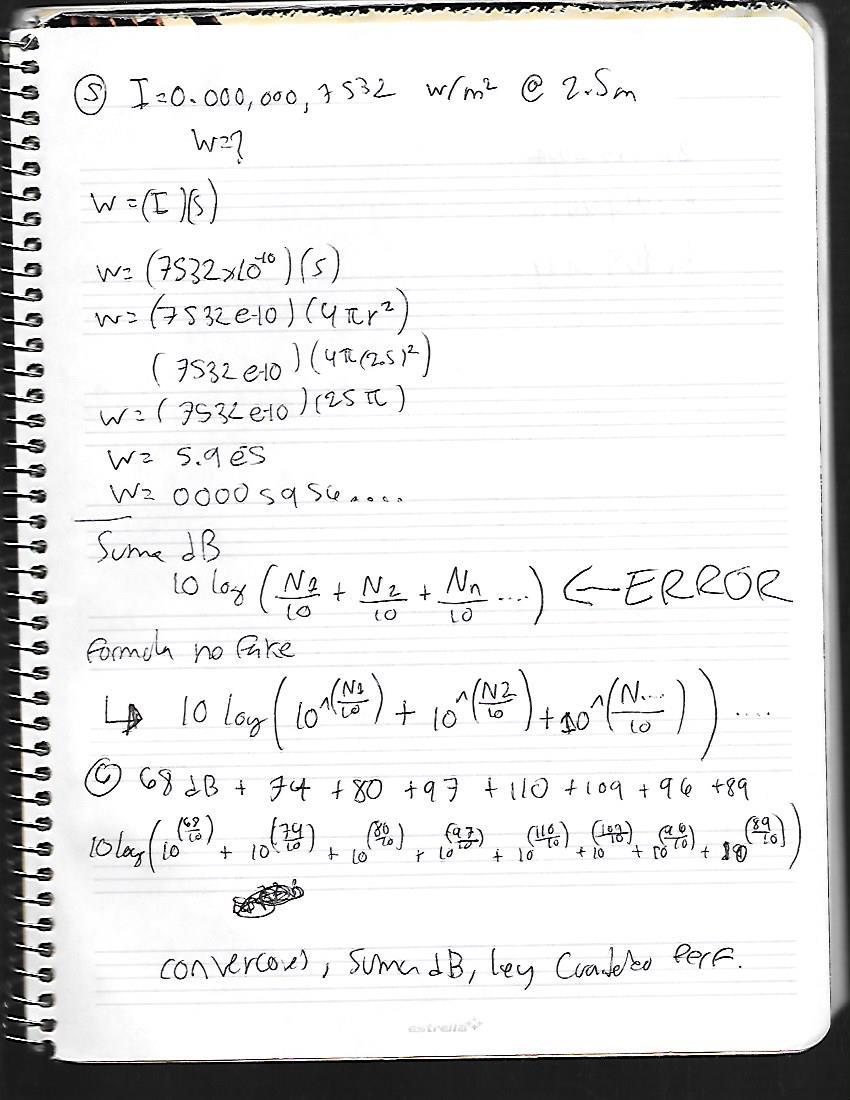 ⑤ I=0.000,000,7532 w/m² @ 2.5m
W=?
W=(I)(s)
W=(7532x10⁻¹⁰)(s)
W=(7532e-10)(4πr²)
(7532e-10)(4π(2.5)²)
W=(7532e-10)(25π)
W= 5.9e-5
W= 00005956....
Suma dB
10 log (N1/10 + N2/10 + Nn/10 ....) ← ERROR
Formula no Fake
↳ 10 log (10^(N1/10) + 10^(N2/10) + 10^(N.../10)) ....
⑥ 68 dB + 74 + 80 + 97 + 110 + 109 + 96 + 89
10 log (10^(68/10) + 10^(74/10) + 10^(80/10) + 10^(97/10) + 10^(110/10) + 10^(109/10) + 10^(96/10) + 10^(89/10))
, Suma dB, ley Perf.
estrella